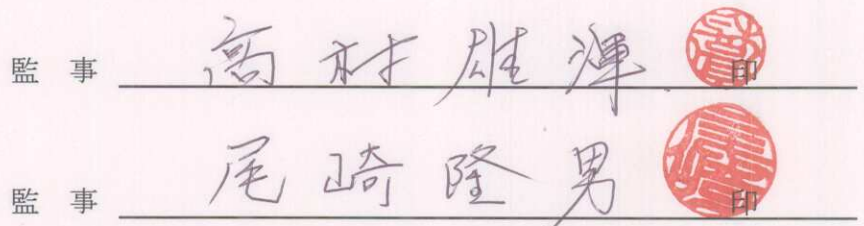 監事 高村雄渾 印
監事 尾崎隆男 印